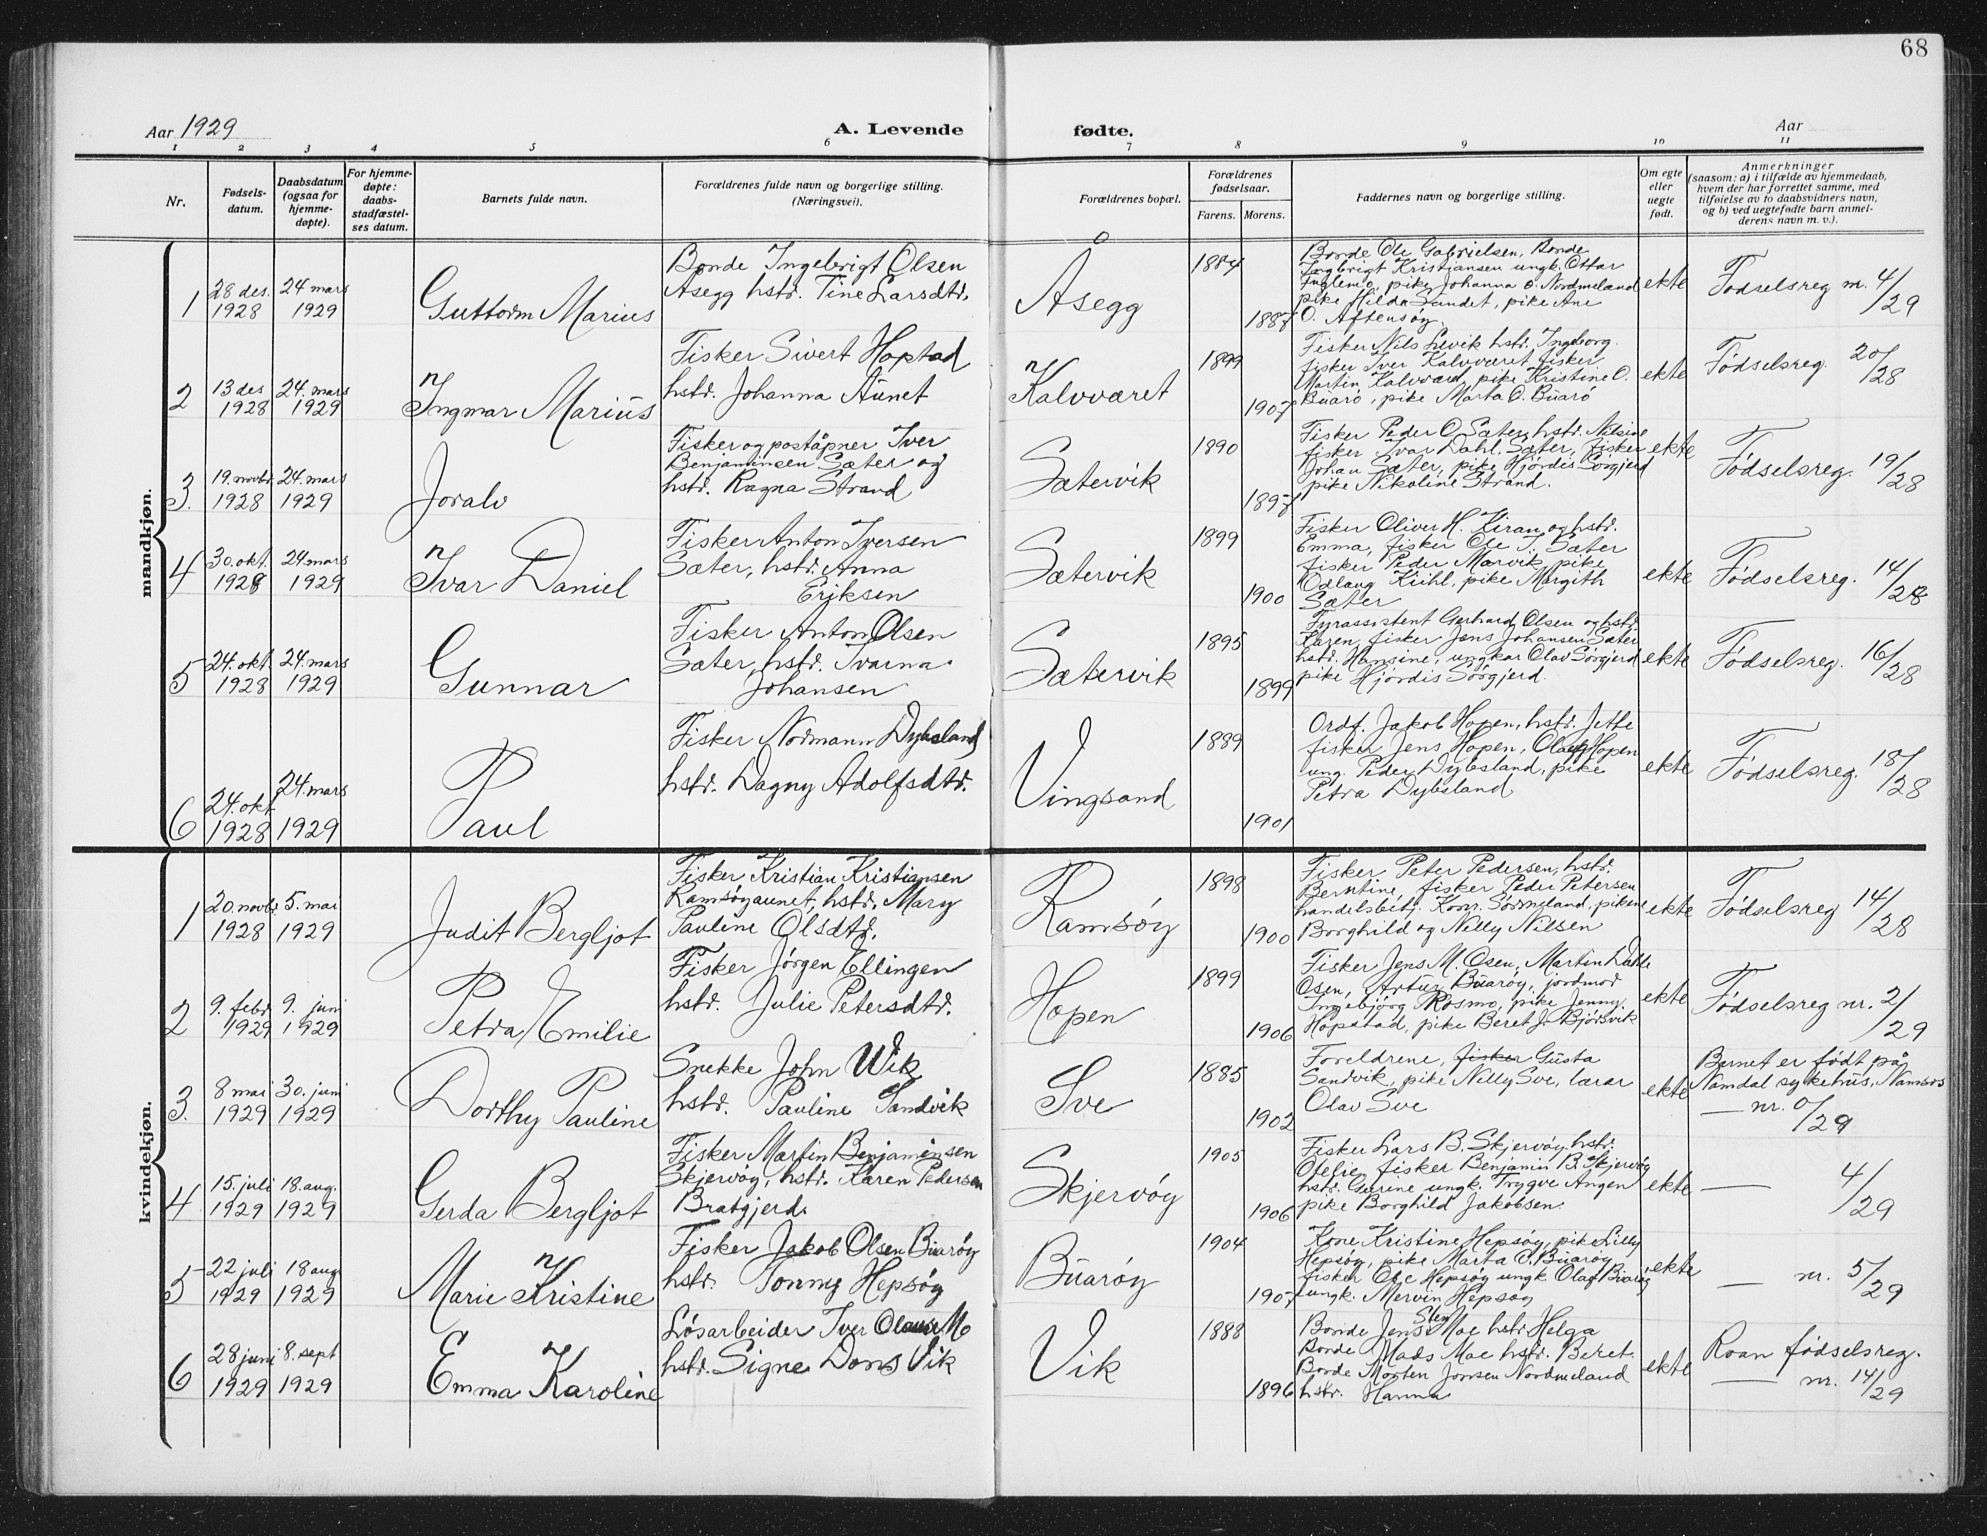 68
Aar 1929
A. Levende fødte.
Aar
1 2 3 4 5 6 7 8 9 10 11
Nr.
Fødsels-
datum.
Daabsdatum
(ogsaa for
hjemme-
døpte).
For hjemme-
døpte:
daabs-
stadfæstel-
ses datum.
Barnets fulde navn.
Forældrenes fulde navn og borgerlige stilling.
(Næringsvei).
Forældrenes bopæl.
Forældrenes
fødselsaar.
Farens. Morens.
Faddernes navn og borgerlige stilling.
Om egte
eller
uegte
født.
Anmerkninger
(saasom: a) i tilfælde av hjemmedaab,
hvem der har forrettet samme, med
tilføielse av to daabsvidners navn,
og b) ved uegtefødte barn anmel-
derens navn m. v.).
mandkjøn.
1
28 des.
1928
24 mars
1929
Guttorm Marius
Bonde Ingebrigt Olsen
Asegg hstr. Tine Larsdtr.
Åsegg
1884
1887
Bonde Ole Gabrielsen, Bonde
Ingbrigt Kristiansen ungk. Ottar
Fuglemo, pike Johanna O. Nordmeland
pike Hilda Sandet, pike Ane
O. Aftensøy
ekte
Fødselsreg nr. 4/29
2
13 des
1928
24. mars
1929
Ingmar Marius
Fisker Sivert Hopstad
hstr. Johanna Aunet
Kalvværet
1899
1907
Fisker Nils hstr. Ingeborg.
fisker Iver Kalvværet fisker
Martin Kalvværet, pike Kristine O.
Buarö, pike Marta O. Buarö
ekte
Fødselsreg. 20/28
3.
19. novbr
1928
24. mars
1929
Joralv
Fisker og poståpner Iver
Benjaminsen Sæter og
hstr. Ragna Strand
Sætervik
1890
1897
Fisker Peder O. Sæter, hstr. Nilsine
fisker Ivar Dahl, Sæter, fisker
Johan Sæter, pike Hjördis Sörgjerd
pike Nikoline Strand.
ekte
Fødselsreg. 19/28
4
30. okt.
1928
24. mars
1929
Ivar Daniel
Fisker Anton Iversen
Sæter, hstr. Anna
Eriksen
Sætervik
1899
1900
Fisker Oliver H. Kiran og hstr.
Emma, fisker Ole I. Sæter
fisker Peder Marvik, pike
Odlaug Kiihl, pike Margith
Sæter
ekte
Fødselsreg. 14/28
5
24. okt.
1928
24. mars
1929
Gunnar
Fisker Anton Olsen
Sæter, hstr. Ivarna
Johansen
Sætervik
1895
1899
Fyrassistent Gerhard Olsen og hstr
Karen, fisker Jens Johansen Sæter
hstr. Hansine, ungkar Olav Sörgjerd
pike Hjördis Sörgjerd.
ekte
Fødselsreg. 16/28
6
24. okt
1928
24. mars
1929
Paul
Fisker Normann Dybsland
hstr. Dagny Adolfsdtr.
Vingsand
1889
1901
Ordf. Jakob Hopen, hstr. Jette
fisker Jens Hopen, Olaug Hopen
ung. Peder Dybsland, pike
Petra Dybsland
ekte
Fødselsreg. 18/28
kvindekjøn.
1
20. novbr.
1928
5. mai
1929
Judit Bergljot
Fisker Kristian Kristiansen
Ramsøyaunet, hstr. Mary
Pauline Olsdtr.
Ramsøy
1898
1900
Fisker Peter Pedersen, hstr.
Berntine, fisker Peder Petersen
handelsbetj. Konr. Sörmeland, pikene
Borghild og Nelly Nilsen
ekte
Fødselsreg 14/28
2
9. febr
1929
9. juni
1929
Petra Emilie
Fisker Jörgen Ellingen
hstr. Julie Petersdtr.
Hopen
1899
1906
Fisker Jens M. Osen, Martin Dahle
Osen, Artur Buarøy, jordmor
Ingebjörg Rosmo, pike Jenny
Hopstad, pike Beret J. Bjørsvik
ekte
Fødselsreg nr. 2/29
3.
8 mai
1929
30. juni
1929
Dorthy Pauline
Snekke John Wik
hstr. Pauline Sandvik
Sve
1885
1902
Foreldrene, fisker Gusta
Sandvik, pike Nelly Sve, lærar
Olav Sve
ekte
Barnet er født på
Namdal sykehus, Namsos
— nr. 0/29
4
15. juli
1929
18. aug.
1929
Gerda Bergljot
Fisker Martin Benjaminsen
Skjervøy, hstr. Karen Pedersen
Bratgjerd.
Skjervøy
1905
1906
Fisker Lars B. Skjervøy, hstr.
Otelie, fisker Benjamin B. Skjervøy
hstr. Gurine ungk. Trygve Angen
pike Borghild Jakobsen.
ekte
— 4/29
5
22 juli
1929
18 aug.
1929
Marie Kristine
Fisker Jakob Olsen Buarøy
hstr. Tonny Hepsøy
Buarøy
1904
1907
Kone Kristine Hepsøy, pike Lilly
Hepsøy, pike Marta O. Buarøy
fisker Ole Hepsøy ungk. Olaf Buarøy
ungk. Mervin Hepsøy
ekte
— nr. 5/29
6
28 juni
1929
8. sept
1929
Emma Karoline
Lösarbeider Iver Olaus M
hstr. Signe Dons Vik
Vik
1888
1896
Bonde Jens Moe hstr. Helga
Bonde Mads Moe hstr. Beret
Bonde Morten Jonsen Nordmeland
hstr. Hanna
ekte
Roan fødselsreg.
— nr. 14/29